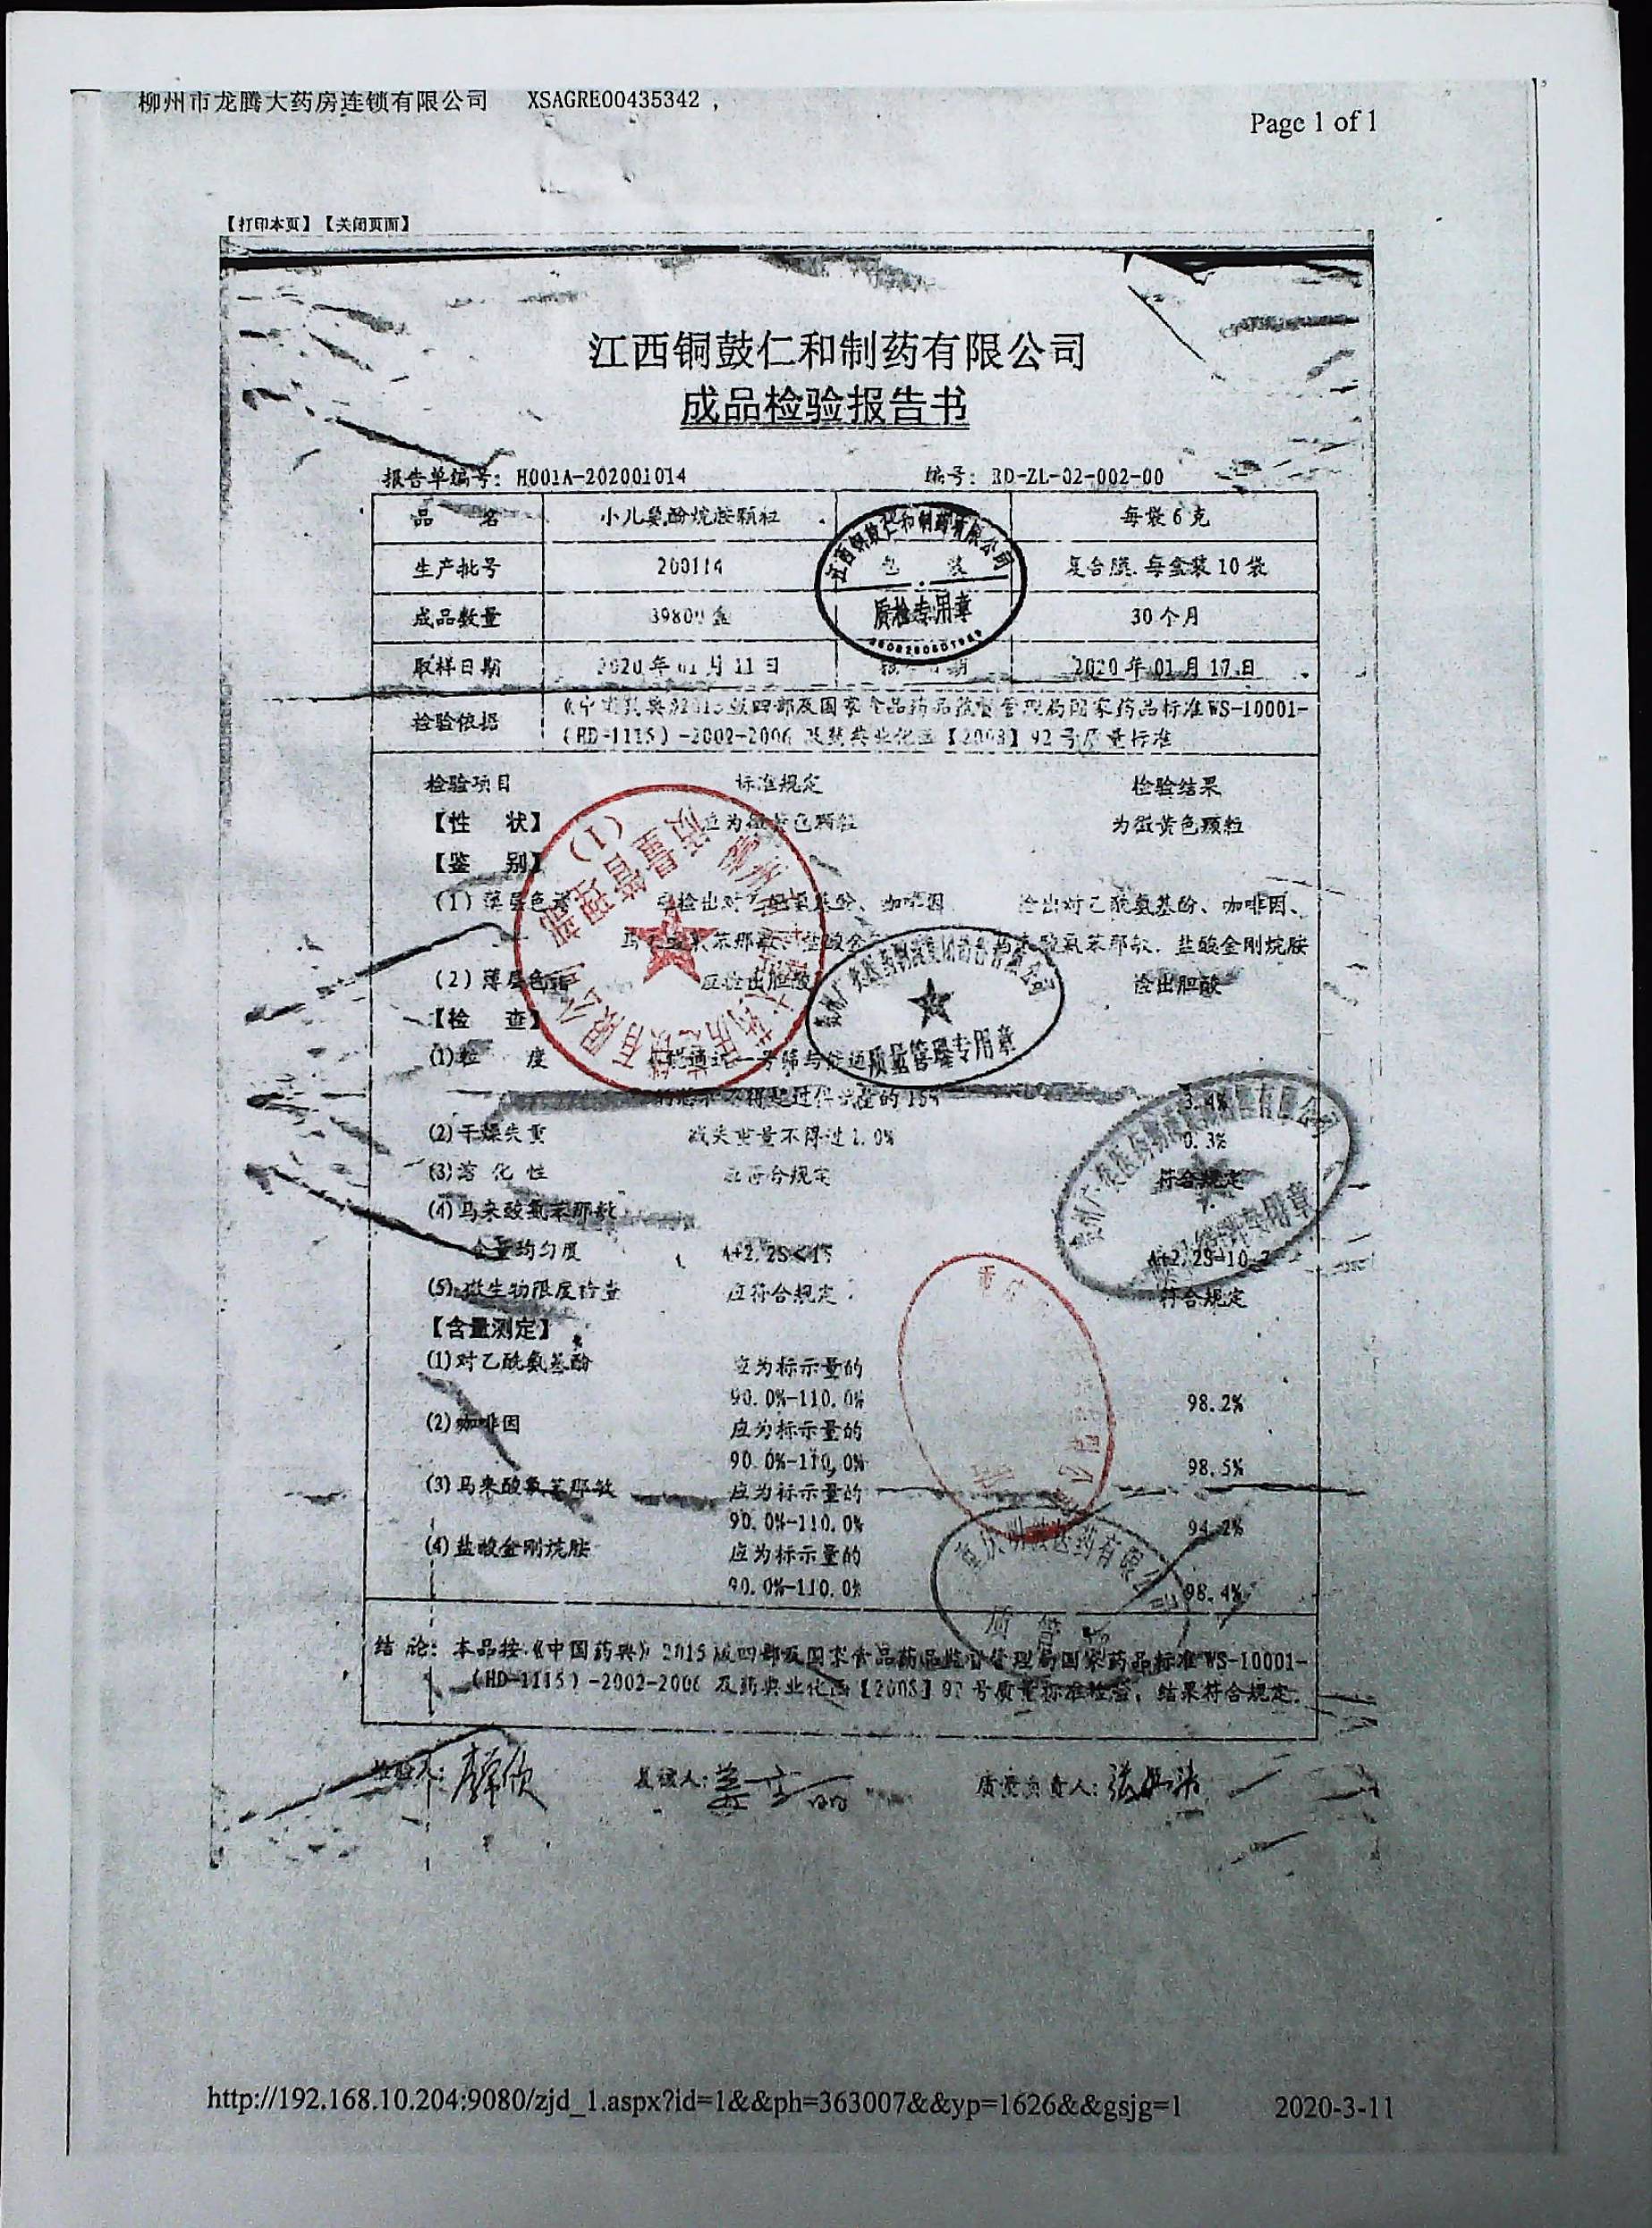 柳州市龙腾大药房连锁有限公司 XSAGRE00435342 ,
Page 1 of 1
【打印本页】【关闭页面】
江西铜鼓仁和制药有限公司
成品检验报告书
报告单编号: H001A-202001014 编号: RD-ZL-02-002-00
品 名 小儿氨酚烷胺颗粒 每袋6克
生产批号 200114 包 装 复合膜.每盒装10袋
成品数量 盒 30个月
取样日期 2020年01月11日 期 2020年01月17日
检验依据 版四部及国家食品药品监督管理局国家药品标准WS-10001-
(HD-1115)-2002-2006 及药典业化函【2008】92号质量标准
检验项目 标准规定 检验结果
【性 状】 应为微黄色颗粒 为微黄色颗粒
【鉴 别】
(1)薄层色谱 检出对 氨基酚、咖啡因 检出对乙酰氨基酚、咖啡因、
氯苯那敏、盐酸金 氯苯那敏、盐酸金刚烷胺
(2)薄层色谱 应检出胆酸 检出胆酸
【检 查】
(1)粒 度 通过一号筛与能通
不得超过供试量的15% 3.4%
(2)干燥失重 减失重量不得过2.0% 0.3%
(3)溶化性 应符合规定 符合规定
(4)马来酸氯苯那敏
含量均匀度 A+2.2S<15 A+2.2S=10.
(5)微生物限度检查 应符合规定 符合规定
【含量测定】
(1)对乙酰氨基酚 应为标示量的
90.0%-110.0% 98.2%
(2)咖啡因 应为标示量的
90.0%-110.0% 98.5%
(3)马来酸氯苯那敏 应为标示量的
90.0%-110.0% 94.2%
(4)盐酸金刚烷胺 应为标示量的
90.0%-110.0% 98.4%
结 论: 本品按《中国药典》2015版四部及国家食品药品监督管理局国家药品标准WS-10001-
(HD-1115)-2002-2006 及药典业化函【2008】92号质量标准检验, 结果符合规定.
检验人: 复试人: 质量负责人:
江西铜鼓仁和制药有限公司
质检专用章
质量管理部
(1)
质量管理专用章
http://192.168.10.204:9080/zjd_1.aspx?id=1&&ph=363007&&yp=1626&&gsjg=1 2020-3-11